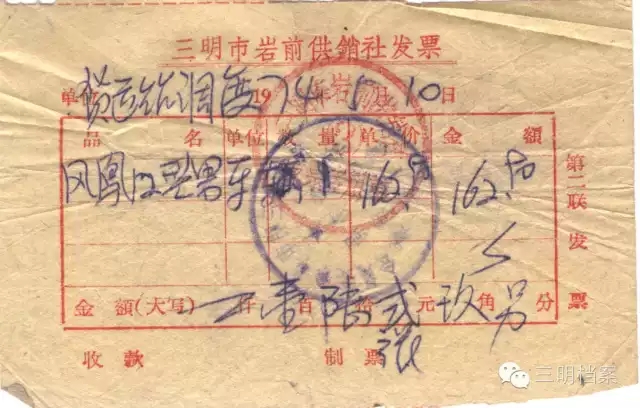 三明市岩前供銷社发票
单 货运站调度 1974年5月10日
品名 单位 数量 单价 金額
凤凰12型男车 辆 1 162.90 162.90
金額(大写) 仟壹百陆拾贰元玖角另分
收款 制票
第二联发票
三明档案